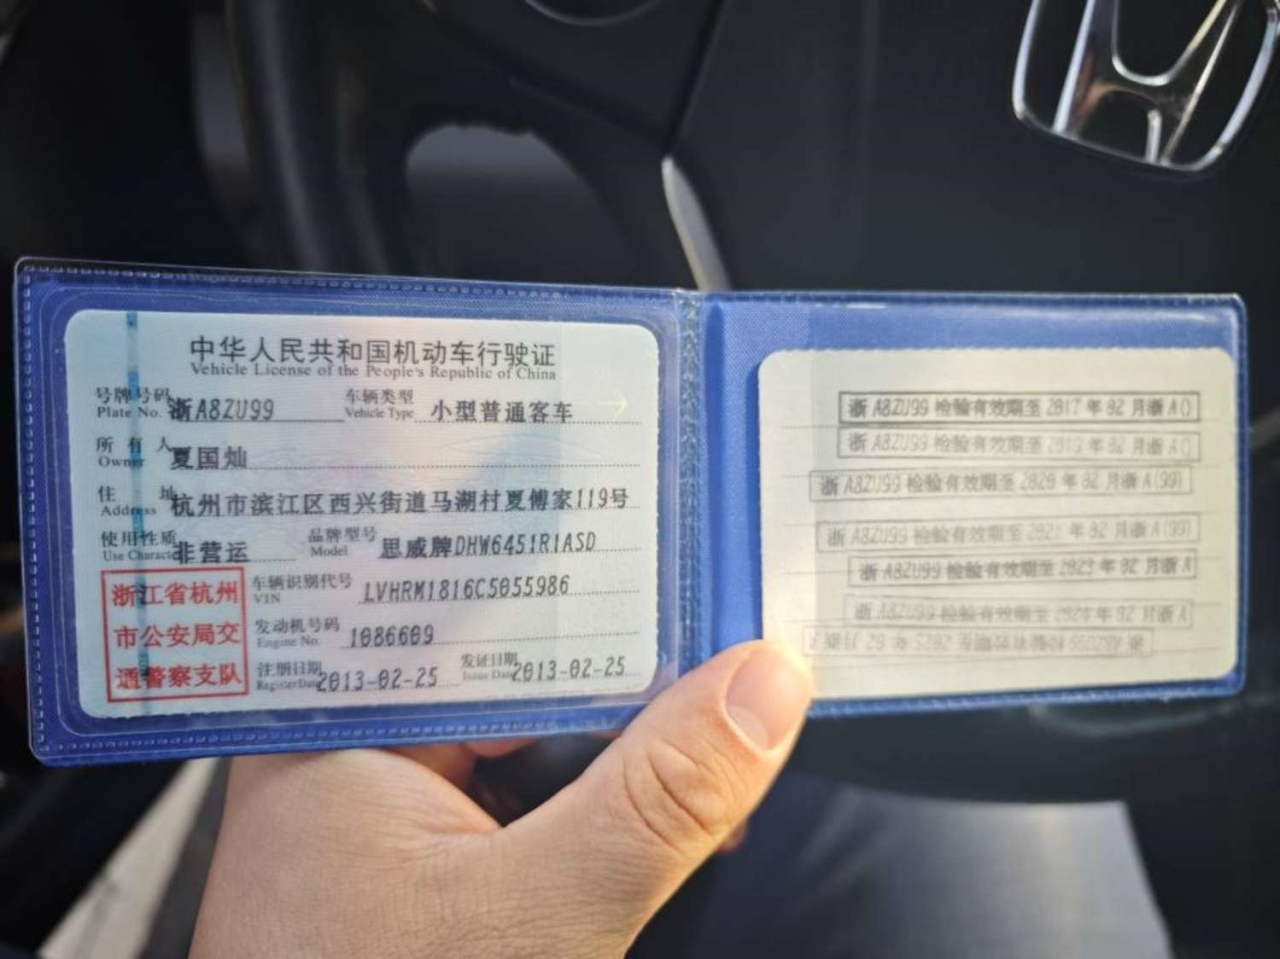 中华人民共和国机动车行驶证
Vehicle License of the People's Republic of China
号牌号码 浙A8ZU99 车辆类型 小型普通客车
Plate No. Vehicle Type
所有人 夏国灿
Owner
住址 杭州市滨江区西兴街道马湖村夏傅家119号
Address
使用性质 非营运 品牌型号 思威牌DHW6451R1ASD
Use Character Model
浙江省杭州
市公安局交
通警察支队
车辆识别代号 LVHRM1816C5055986
VIN
发动机号码 1086609
Engine No.
注册日期 2013-02-25 发证日期 2013-02-25
Register Date Issue Date
浙A8ZU99 检验有效期至 2017 年 02 月浙A()
浙A8ZU99 检验有效期至 2019 年 02 月浙A()
浙A8ZU99 检验有效期至 2020 年 02 月浙A(99)
浙A8ZU99 检验有效期至 2021 年 02 月浙A(99)
浙A8ZU99 检验有效期至 2023 年 02 月浙A
浙A8ZU99 检验有效期至 2024 年 02 月浙A